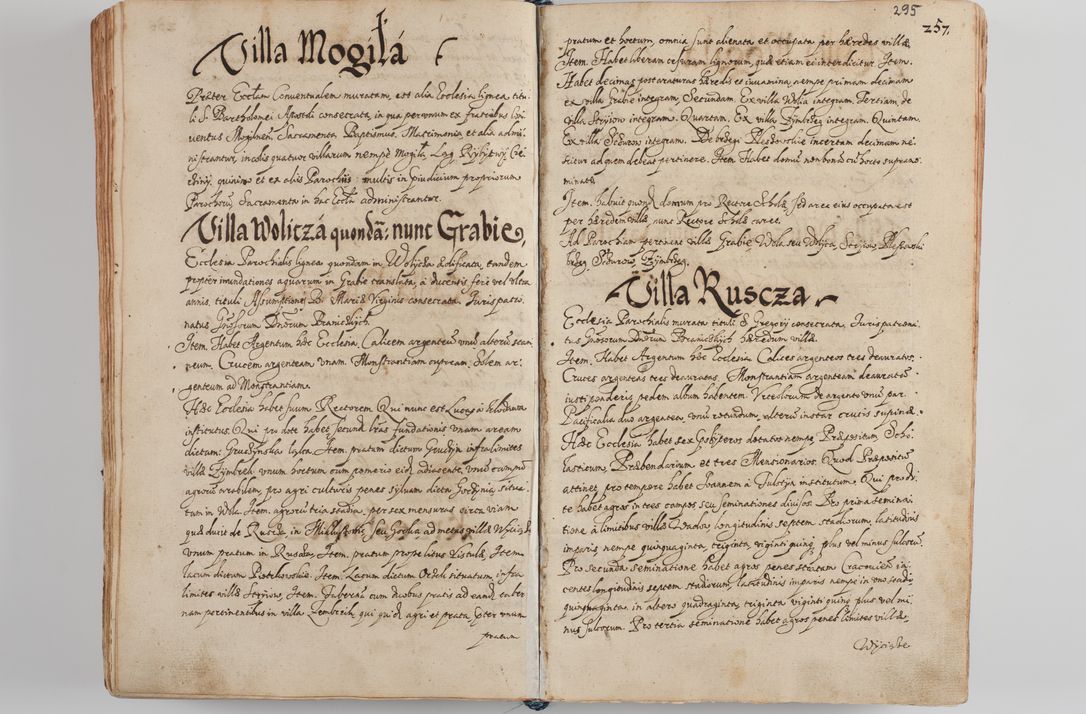 Villa Mogiłá
Præter Eccłam Conventualem muratam, est alia Ecclesia lignea titu
li S. Bartholomei Apostoli consecrata, in qua per unum ex fratribus Con
ventus Mogilnen. Sacramenta Baptismus, Matrimonia et alia admi
nistrantur, incolis quatuor villarum nempe Mogiła, Łęg
quinimo et ex aliis Parochiis multis in præiudicium propriorum
Parochorũ Sacramenta in hac Eccła administrantur.
Villa Woliczá quondã: nunc Grabie,
Ecclesia Parochialis lignea quondam in Wolycza ædificata, tandem
propter inundationes aquarum in Grabie translata, à ducentis fere vel ultra
annis, tituli Assumptionis B. Mariæ Virginis consecrata. Juris patro
natus Gnosorum Dnorum Branickich.
Item. Habet Argentum hæc Ecclesia, Calicem argenteũ unũ alterũ stan
neum. Crucem argenteam unam. Monstrantiam cupream. Solem ar
genteum ad Monstrantiam.
Hæc Ecclesia habet suum Rectorem Qui nunc est Lucas à
institutus. Qui pro dote habet secund. lras fundationis unam aream
dictam Item. pratum dictum infra limites
villæ Zymbrek unum hortum cum pomerio eid. adiacente, unũ campũ
agrorũ arabilem, pro agri culturis penes sylvam dictã situa
tum in Wola. Item. agrorũ tria stadia, per sex mensuras circa viam
quæ ducit de Rusdo, in seu ad metas villæ
unum pratum in Rusdo. Item. pratum prope litus Vistulæ, Item
lacum dictum Piotrkowskie. Item. Lacum dictum situatum, infra
limites villæ Item. Tabernã cum duobus pratis ad eand. taber
nam pertinentibus in villa Zembrzik, qui quid. agri et prata, præter unum
pratum
295
257.
pratum et hortum, omnia sunt alienata et occupata per hæredes villæ.
Item. Habet liberam cæsuram lignorum, quæ etiam ei interdicitur. Item.
Habet decimas post araturas hæredis et nempe primam decimam
ex villa Grabie integram, Secundam. Ex villa Wolia integram. Tertiam, de
villa Strýiow integram. Quartam. Ex villa Zymbrzeg integram. Quintam.
Ex villa Sidurow integram. De brzegi incertam decimam ne-
scitur ad quem debeat pertinere. Item Habet domũ non bonã cũ horto supra no
minato.
Item. habuit quond. domum pro Rectore Scholæ, sed area eius occupata est
per hæredem villæ nunc Rectore Scholæ caret.
Ad Parochiam pertinent villæ Grabie Wola seu Wolica, Stryiow,
brzeg, Sidurow, Zymbrzeg.
Villa Ruscza
Ecclesia Parochialis murata tituli S. Gregorij consecrata, Juris patrona
tus Gnosorum Dnorum Branickich hæredum villæ.
Item. Habet Argentum hæc Ecclesia Calices argenteos tres deauratos.
Cruces argenteas tres deauratas, Monstrantiam argenteam deauratã
iusti ponderis pedem album habentem. Urceolorum de argento unũ par.
Pacificalia duo argentea, unũ rotundum, alterũ instar crucis
Hæc Ecclesia habet sex Præsbyteros dotatos nempe, Præpositum, Scho
lasticum, Præbendarium et tres Mansionarios. Quod Præpositũ
attinet, pro tempore habet Joannem à institutum. Qui pro do
te habet agros in tres campos seu seminationes divisos. Pro prima semina
tione à limitibus villæ longitudinis septem stadiorum, latitudinis
imparis, nempe quinquaginta, triginta, viginti quinq. plus vel minus sulcorũ.
Pro secunda seminatione habet agros penes stratam Cracovien. in
centes longitudinis septem stadiorum, latitudinis imparis nempe in uno stadio
quinquaginta, in altero quadraginta, triginta viginti quinq. plus vel mi
nus sulcorum. Pro tertia seminatione habet agros penes limites villæ,
Wyciąże